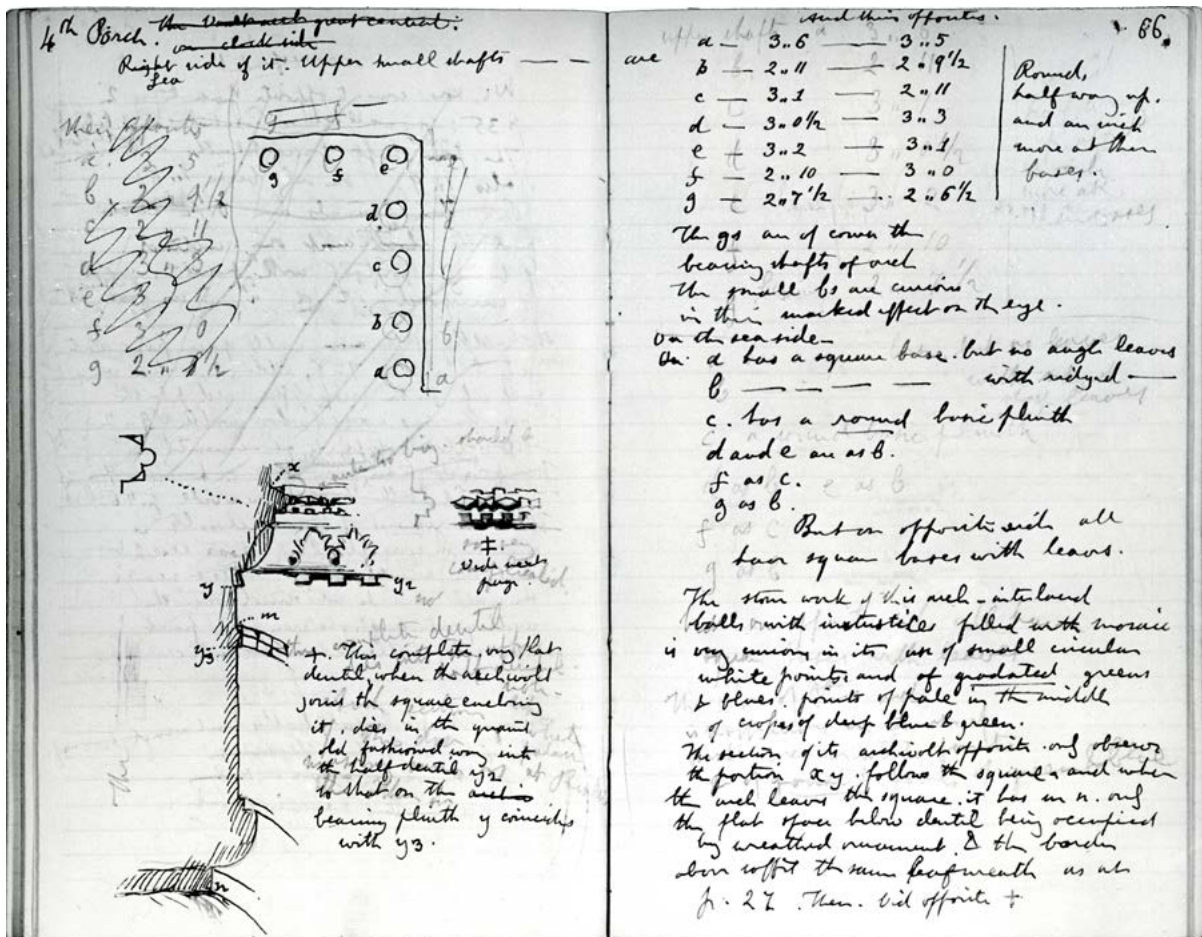 4th Porch. The Vault arch great central.
on clock side
Right side of it. Upper small shafts — —
Sea
their opposites
a. 3 5
b. 2 9 1/2
c 2 11
d 3 3
e 3 1
f 3 0
g 2 „ 6 1/2
g f e
d
c
b
a
x
y
y2
m
y3
n
‡
Vide next
page.
+. This complete very flat
dentil, when the archivolt
joins the square enclosing
it, dies in the quaint
old fashioned way into
the half dentil y2
so that on the
bearing plinth y coincides
with y3.
86.
and their opposites.
are
a — 3„6 — 3„5
b — 2„11 — 2„9 1/2
c — 3„1 — 2„11
d — 3„0 1/2 — 3„3
e — 3„2 — 3„1
f — 2„10 — 3„0
g — 2„7 1/2 — 2„6 1/2
Round,
half way up.
and an inch
more at their
bases.
The gs are of course the
bearing shafts of arch
The small bs are curious
in their marked effect on the eye.
On the sea side—
On a has a square base. but no angle leaves
b — — — — with ridged —
c. has a round basic plinth
d and e are as b.
f as c.
g as b.
But on opposite side all
have square bases with leaves.
The stone work of this arch - interlaced
balls with interstices filled with mosaic
is very curious in its use of small circular
white points and of gradated greens
& blues, points of pale in the middle
of crosses of deep blue & green.
The section of its archivolt opposite. only observe
the portion x y. follows the square, and when
the arch leaves the square. it has m n. only
the flat space below dentil being occupied
by wreathed ornament. & the border
above soffit the same leaf wreath as at
p. 27 Then. vid opposite +